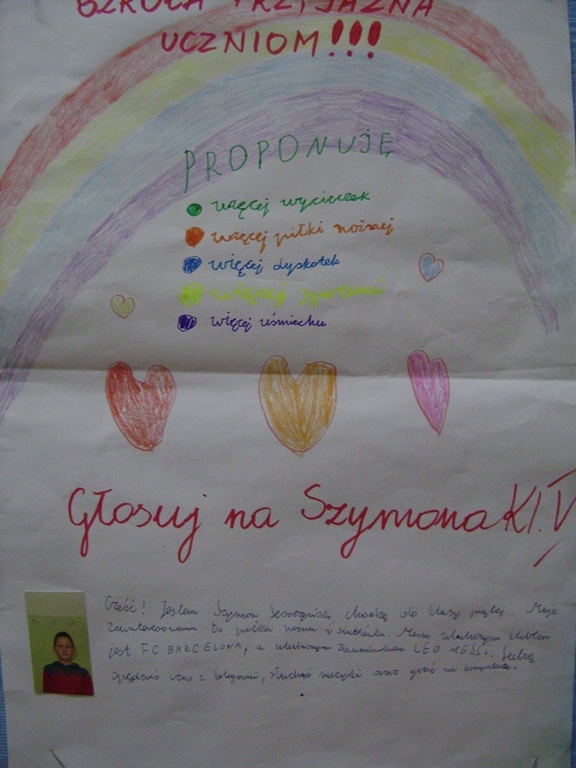 SZKOŁA PRZYJAZNA
UCZNIOM!!!
PROPONUJĘ
więcej wycieczek
więcej piłki nożnej
więcej dyskotek
więcej
więcej uśmiechu
Głosuj na Szymona Kl. V
Cześć! Jestem Szymon chodzę do klasy piątej. Moje
zainteresowania to piłka nożna i siatkówka. Moim ulubionym klubem
jest FC BARCELONA, a ulubionym zawodnikiem LEO MESSI. Lubię
spędzać czas z kolegami, słuchać muzyki oraz grać na komputerze.